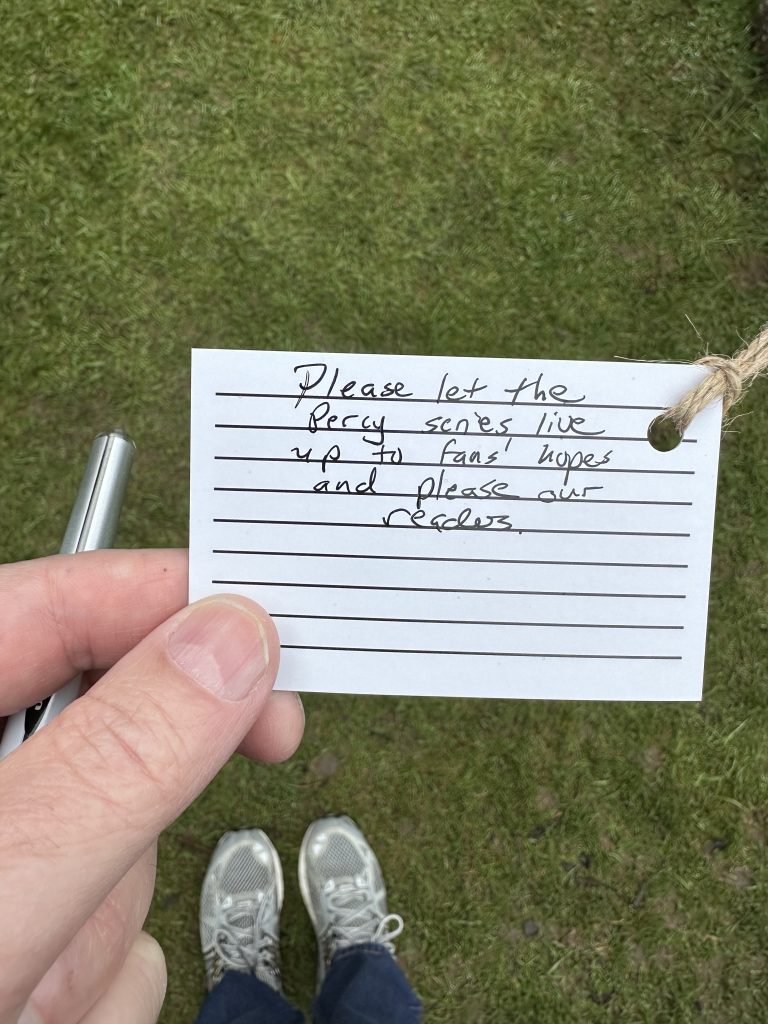 Please let the
Percy series live
up to fans' hopes
and please our
readers.